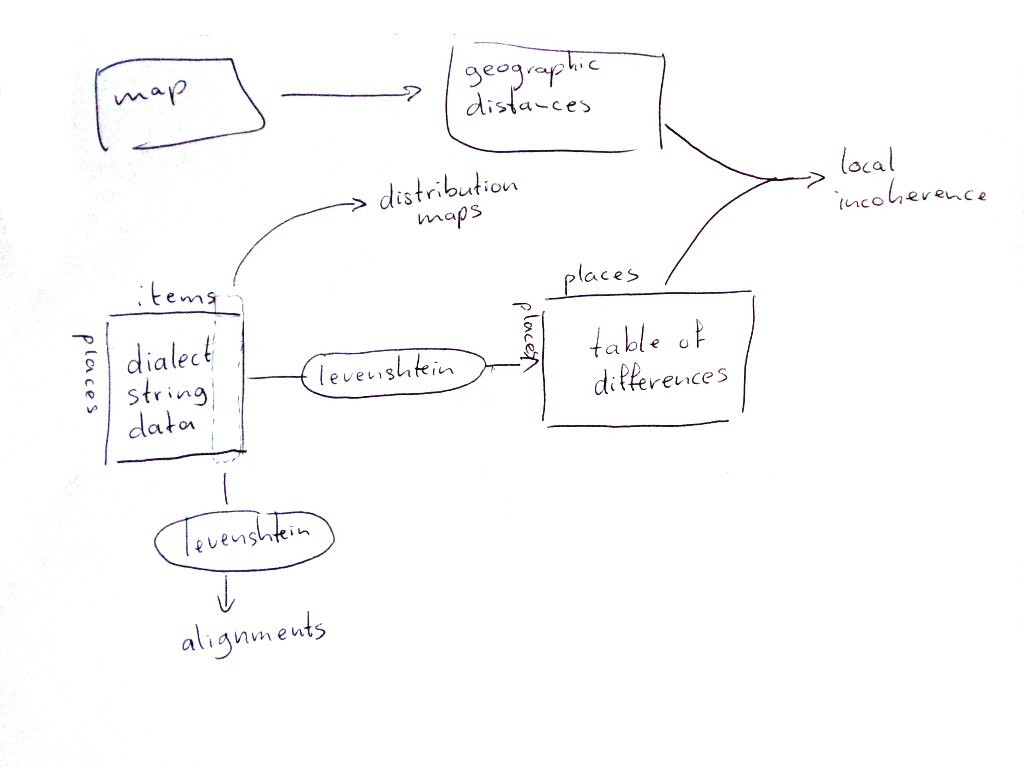 map
geographic
distances
local
incoherence
distribution
maps
items
places
dialect
string
data
levenshtein
places
places
table of
differences
levenshtein
alignments